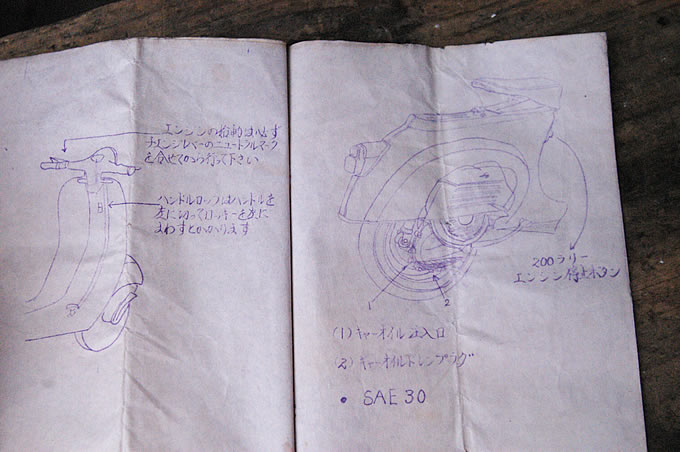 エンジンの始動は必ず
チェンジレバーのニュートラルマーク
を合せてから行って下さい
ハンドルロックはハンドルを
左に切ってロッキーを左に
まわすとかかります
200ラリー
エンジン停止ボタン
1
2
(1) キャーオイル注入口
(2) キャーオイルドレンプラグ
• SAE 30